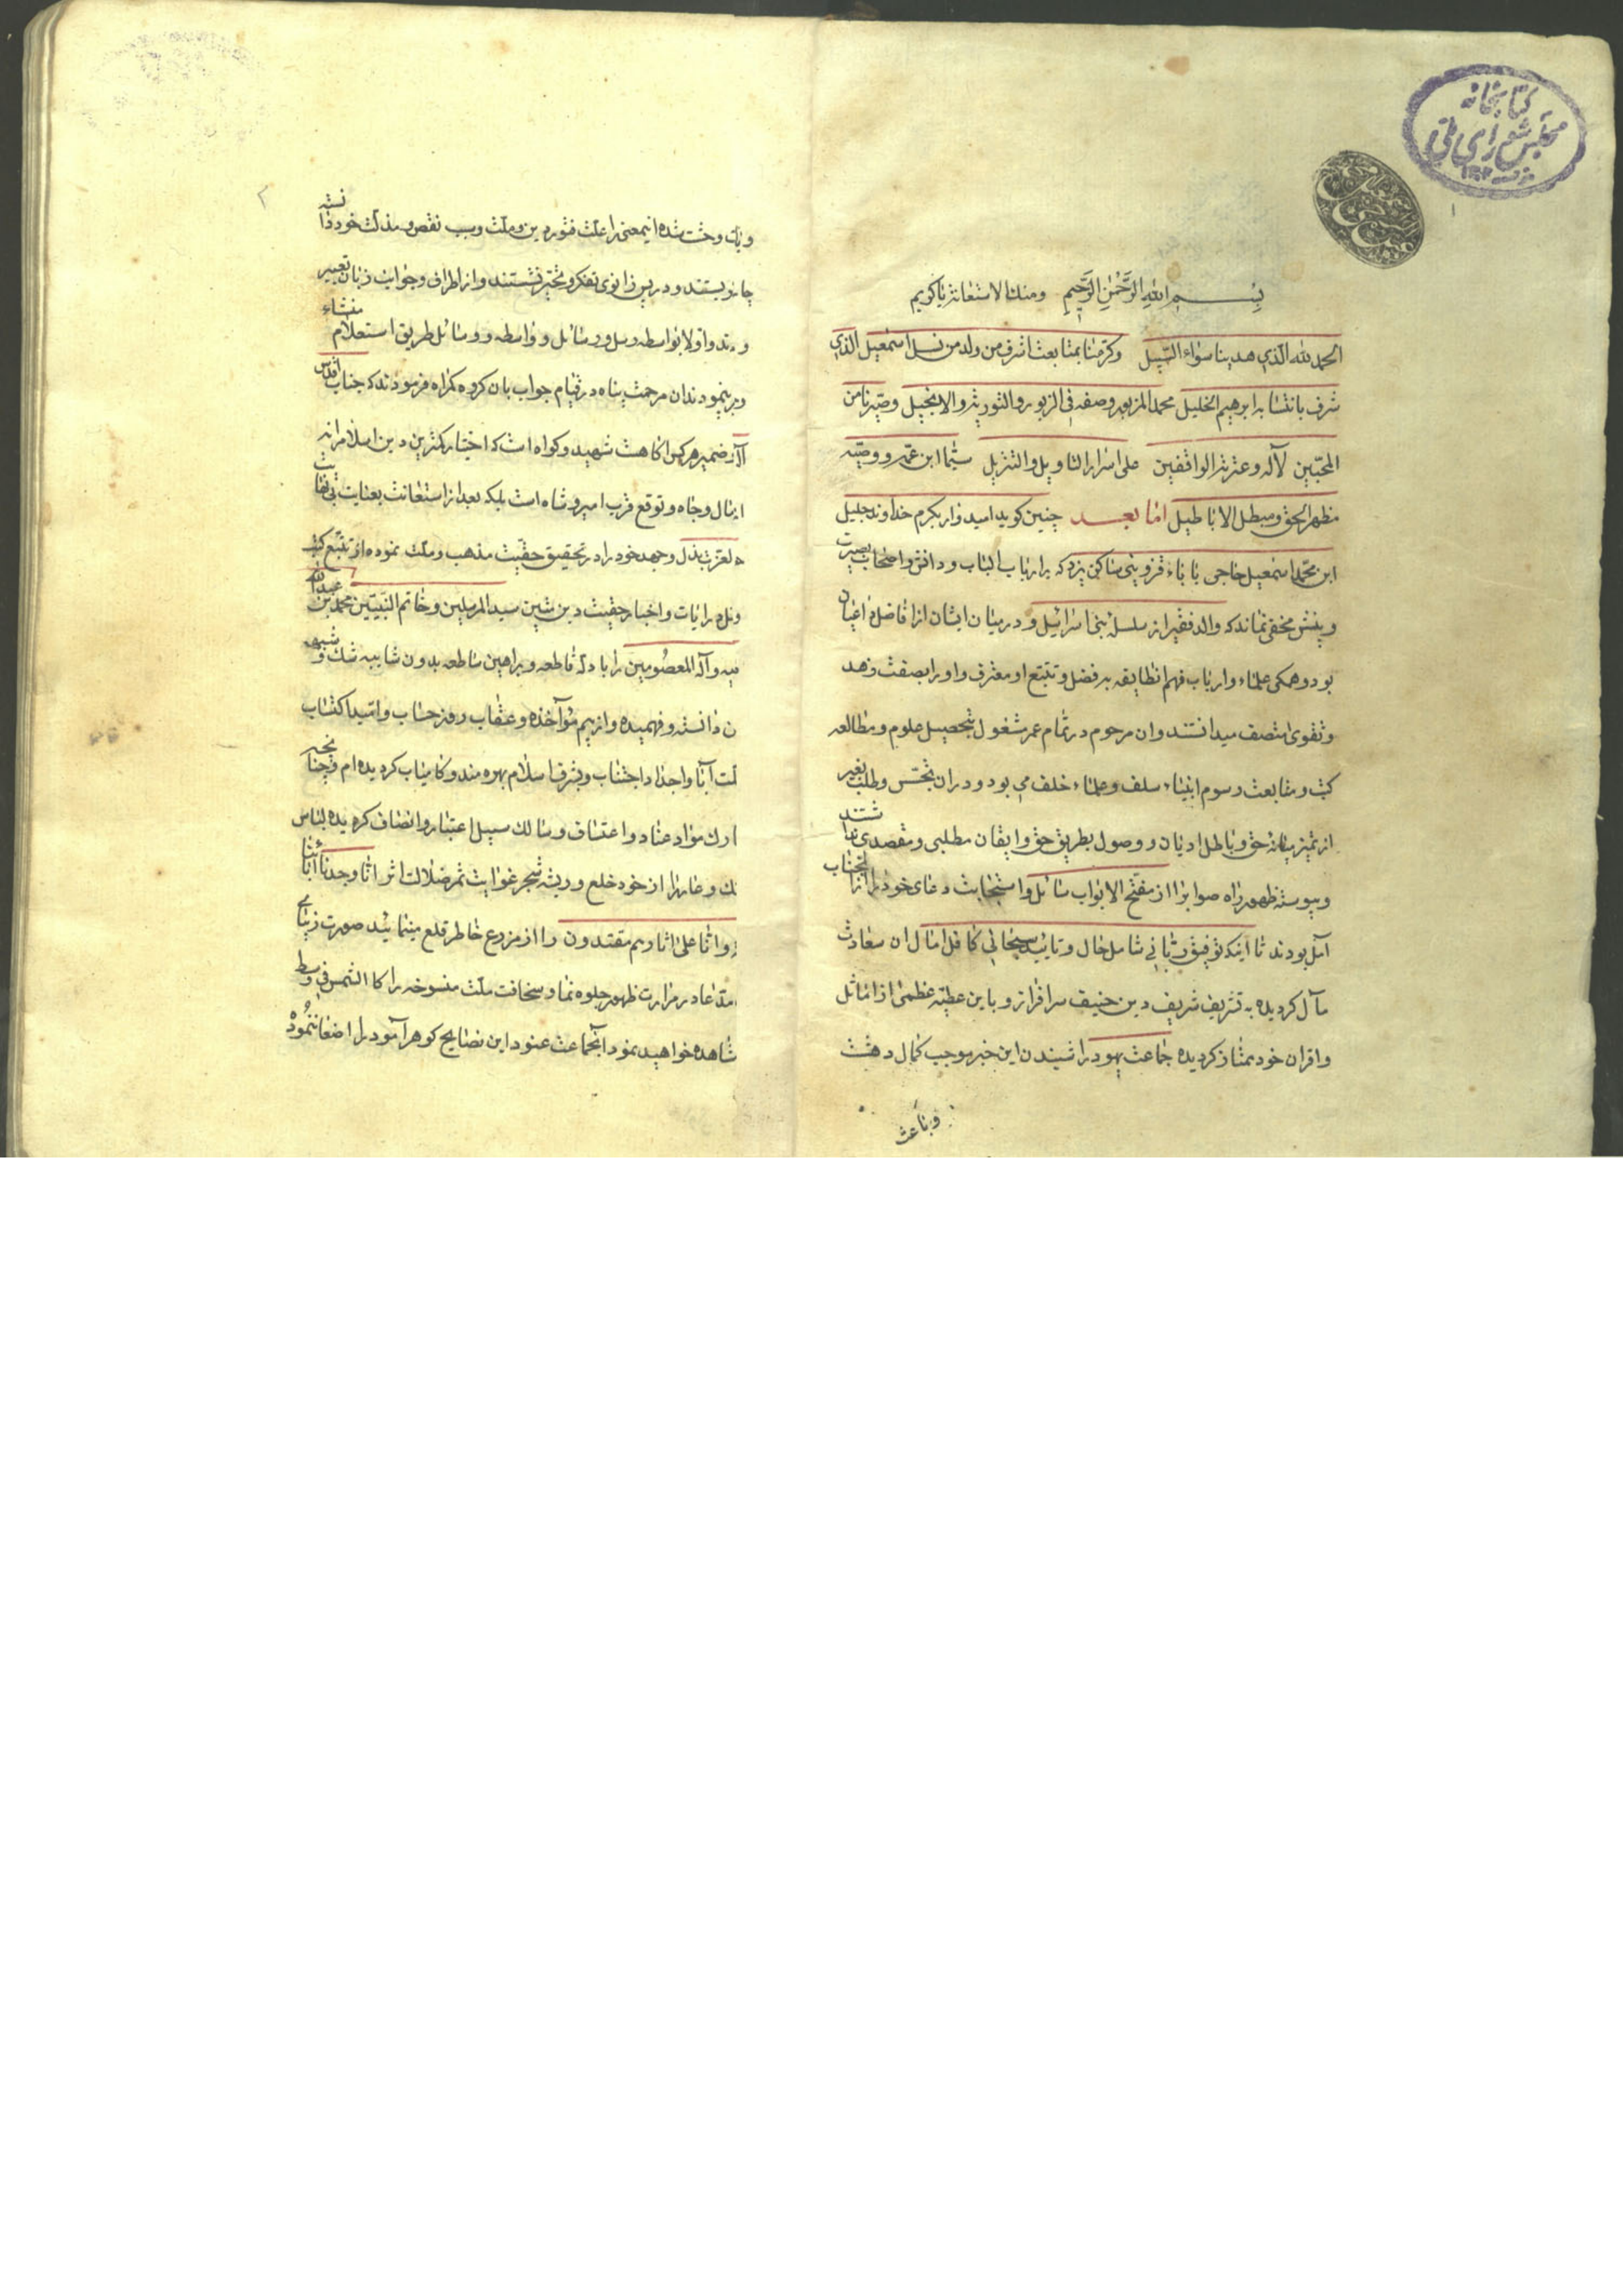 کتابخانه
مجلس شورای ملی
۱
بِسْمِ اللهِ الرَّحْمٰنِ الرَّحِيمِ ومنك الاستعانة يا كريم
الحمد لله الّذي هدينا سواء السّبيل وكرّمنا بمتابعت اشرف من ولد من نسل اسمعيل الذي
شرف بانتسابه ابرهيم الخليل محمد المزبور وصفه في الزبور والتورية والانجيل وصيّرنا من
المحبّين لآله وعترته الواقفين على اسرار التاويل والتنزيل سيّما ابن عمّه ووصيّه
مظهر الحق ومبطل الاباطيل اما بعد چنين كويد اميدوار بكرم خداوند جليل
ابن محمّد اسمعيل حاجى بابا قزوينى ساكن يزد كه بر ارباب الباب ودانش واصحاب بصيرت
وبينش مخفى نماند كه والد فقير از سلسله بنى اسرائيل ودر ميان ايشان از افاضل و اعيان
بود وهمكى علماء وارباب فهم انطايفه بر فضل وتتبّع او معترف واورا بصفت زهد
وتقوى متّصف ميدانستند وان مرحوم در تمام عمر مشغول بتحصيل علوم ومطالعه
كتب ومتابعت رسوم انبياء سلف وعلماء خلف مى بود ودران تجسّس وطلب بغير
از تميز ميانه حق وباطل اديان ووصول بطريق حق وايقان مطلبى ومقصدى نداشتند
وپيوسته ظهور راه صواب را از مفتّح الابواب سائل واستجابت دعاى خود را از انجناب
آمل بودند تا اينكه توفيق ربّانى شامل حال وتاييد سبحانى كافل امال ان سعادت
مآل كرديده به تشريف شريف دين حنيف سرافراز وباين عطيّه عظمى از اماثل
واقران خود ممتاز كرديده جماعت يهود را شنيدن اين خبر موجب كمال دهشت
وباعث
۲
وحشت شده اينمعنى را علّت فتور دين وملّت وسبب نقص ومذلّت خود دانسته
بستند ودر پس زانوى تفكر وتحيّر نشستند واز اطراف وجوانب زبان تعبير
واولا بواسطه رسل ورسائل وواسطه ووسائل طريق استعلام منشاء
نمودند ان مرحمت پناه در مقام جواب بان كروه كمراه فرمودند كه جناب اقدس
ضمير هر كس اكاهست شهيد وكواه است كه اختيار كمترين دين اسلام را نه
مال وجاه وتوقع قرب امير وشاه است بلكه بعد از استعانت بعنايت بى نهايت
لعزت بذل وجهد خود را در تحقيق حقّيت مذهب وملّت نموده از تتبّع كتب
ايات واخبار حقّيت دين متين سيد المرسلين وخاتم النّبيّين محمّد بن عبدالله
وآله المعصومين را با دلّه قاطعه وبراهين ساطعه بدون شايبه شك وشبهه
دانسته وفهميده واز بيم مؤاخذه وعقاب روز حساب واميد اكتساب
آبا واجداد اجتناب وبشرف اسلام بهره مند وكامياب كرديده ام وچنانچه
مواد عناد واعتساف وسالك سبيل اعتبار وانصاف كرديده لباس
وعار را از خود خلع وريشه شجر غوايت ثمر ضلالت اثر انّا وجدنا آبائنا
وانّا على اثارهم مقتدون را از مزرع خاطر قلع مينمايند صورت زيباى
مدّعا در مرات ظهور جلوه نما وسخافت ملّت منسوخه را كا الشمس في وسط
مشاهده خواهيد نمود آنجماعت عنود اين نصايح كوهر آمود را اصغا ننموده